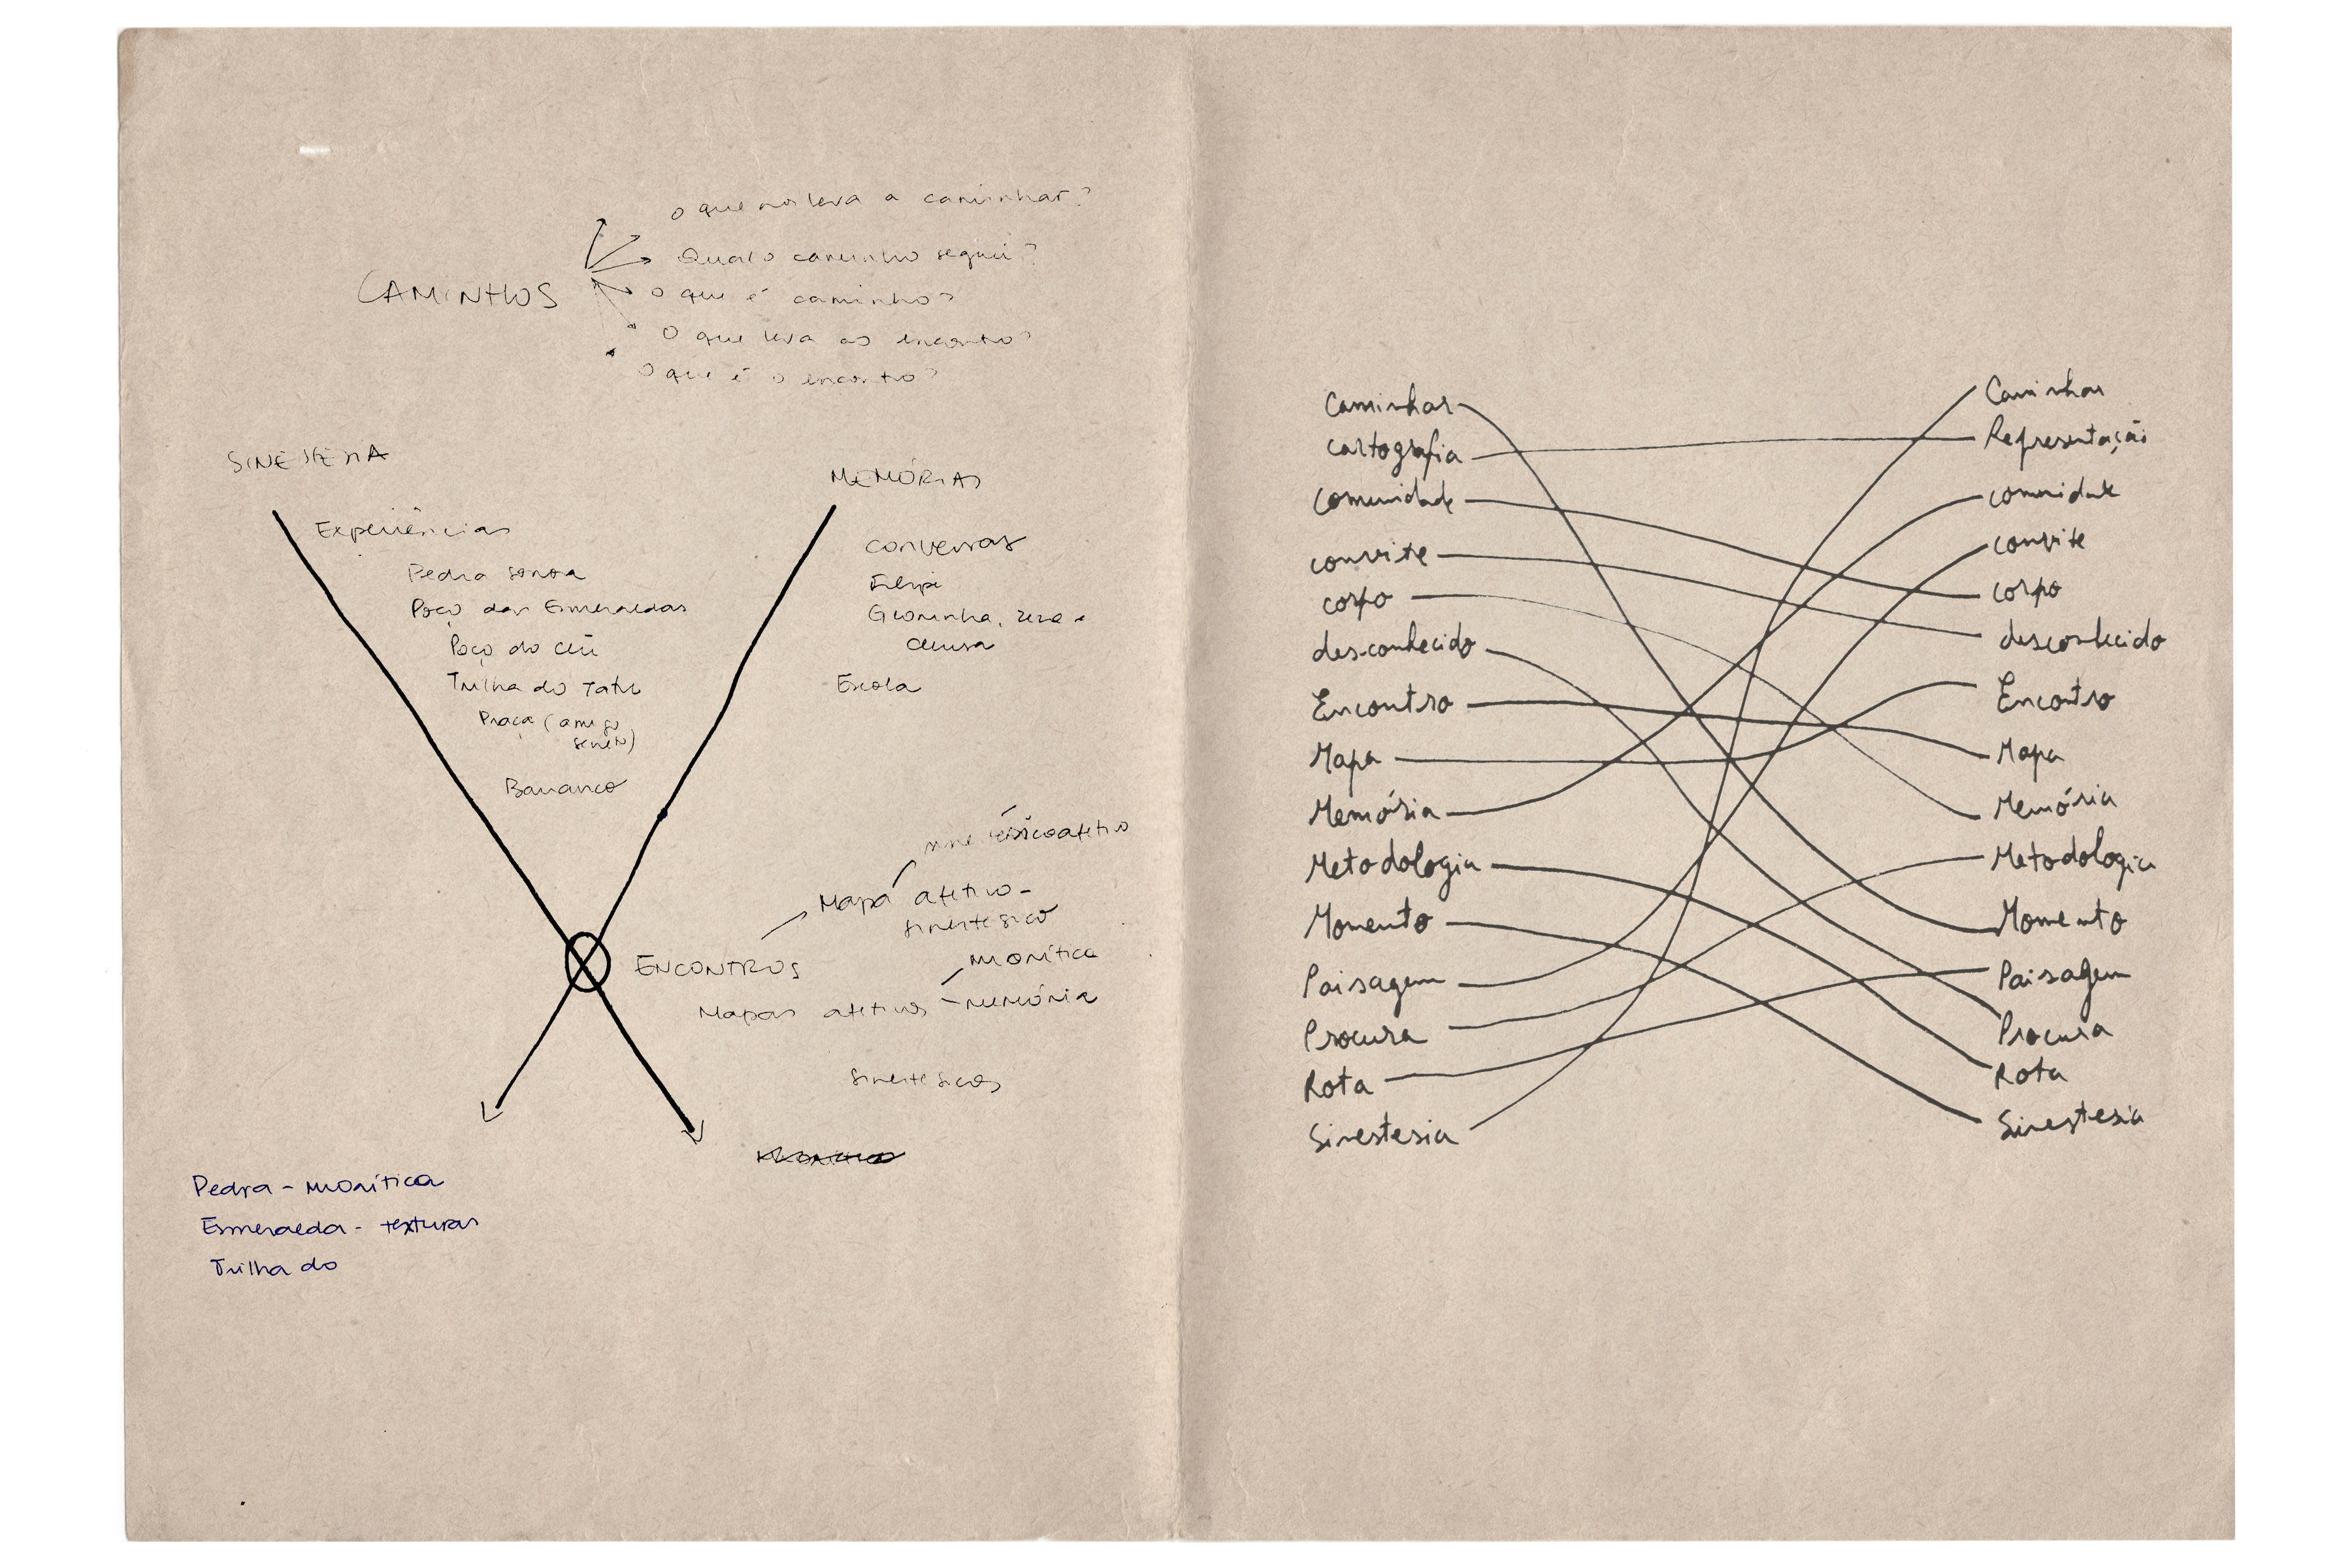 o que nos leva a caminhar?
Qual o caminho seguir?
CAMINHOS
o que é caminho?
O que leva ao encontro?
O que é o encontro?
SINESTESIA
MEMÓRIAS
Experiências
conversas
Pedra sonora
Filipi
Poço das Esmeraldas
Poço do Céu
Trilha do Tatu
Escola
Praça (amigo
secreto)
Barranco
Mapa afetivo-
sinestésico
ENCONTROS
mnemônica
Mapas afetivos - memória
sinestésicos
Pedra - mnemônica
Esmeralda - texturas
Trilha do
Caminhar
Cartografia
Comunidade
convite
corpo
desconhecido
Encontro
Mapa
Memória
Metodologia
Momento
Paisagem
Procura
Rota
Sinestesia
Caminhar
Representação
comunidade
convite
corpo
desconhecido
Encontro
Mapa
Memória
Metodologia
Momento
Paisagem
Procura
Rota
Sinestesia